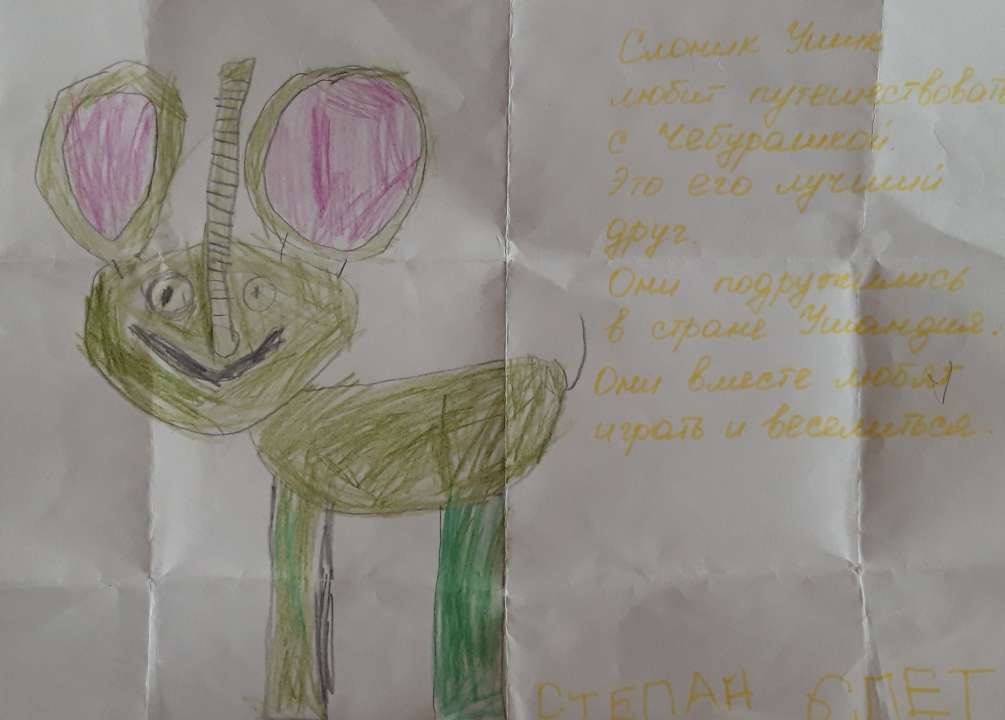 Слоник Ушик
любит путешествовать
с Чебурашкой.
Это его лучший
друг.
Они подружились
в стране Ушандия.
Они вместе любят
играть и веселиться.
СТЕПАН 6 ЛЕТ